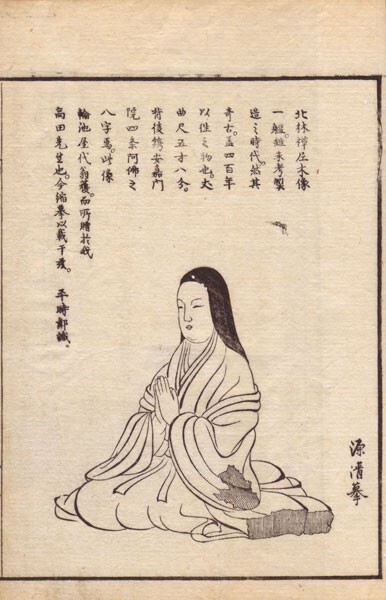 北林禅尼木像
一軀雖未考製
造之時代。然其
奇古。盖四百年
以往之物也。大
曲尺五寸八分。
背後鐫安嘉門
院四条阿佛之
八字焉。此像
輪池屋代翁獲。而所贈於我
高田先生也。今縮摹以載于茲。 平時鄰識。
源清摹